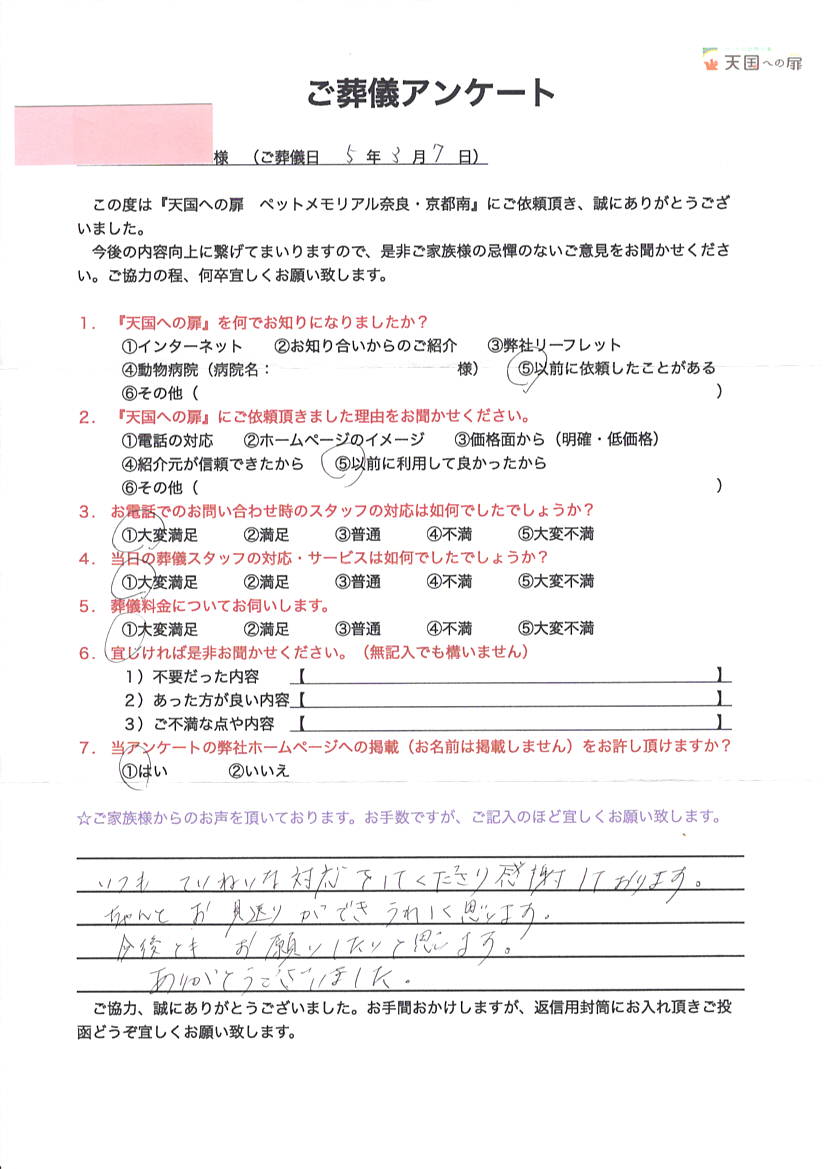 天国への扉
ご葬儀アンケート
様 （ご葬儀日 5 年 3 月 7 日）
この度は『天国への扉 ペットメモリアル奈良・京都南』にご依頼頂き、誠にありがとうござ
いました。
今後の内容向上に繋げてまいりますので、是非ご家族様の忌憚のないご意見をお聞かせくださ
い。ご協力の程、何卒宜しくお願い致します。
１．『天国への扉』を何でお知りになりましたか？
①インターネット ②お知り合いからのご紹介 ③弊社リーフレット
④動物病院（病院名： 様） ⑤以前に依頼したことがある
⑥その他（ ）
２．『天国への扉』にご依頼頂きました理由をお聞かせください。
①電話の対応 ②ホームページのイメージ ③価格面から（明確・低価格）
④紹介元が信頼できたから ⑤以前に利用して良かったから
⑥その他（ ）
３．お電話でのお問い合わせ時のスタッフの対応は如何でしたでしょうか？
①大変満足 ②満足 ③普通 ④不満 ⑤大変不満
４．当日の葬儀スタッフの対応・サービスは如何でしたでしょうか？
①大変満足 ②満足 ③普通 ④不満 ⑤大変不満
５．葬儀料金についてお伺いします。
①大変満足 ②満足 ③普通 ④不満 ⑤大変不満
６．宜しければ是非お聞かせください。（無記入でも構いません）
１）不要だった内容 【 】
２）あった方が良い内容【 】
３）ご不満な点や内容 【 】
７．当アンケートの弊社ホームページへの掲載（お名前は掲載しません）をお許し頂けますか？
①はい ②いいえ
☆ご家族様からのお声を頂いております。お手数ですが、ご記入のほど宜しくお願い致します。
いつも ていねいな対応をしてくださり感謝しております。
ちゃんと お見送りができうれしく思います。
今後とも お願いしたいと思います。
ありがとうございました。
ご協力、誠にありがとうございました。お手間おかけしますが、返信用封筒にお入れ頂きご投
函どうぞ宜しくお願い致します。